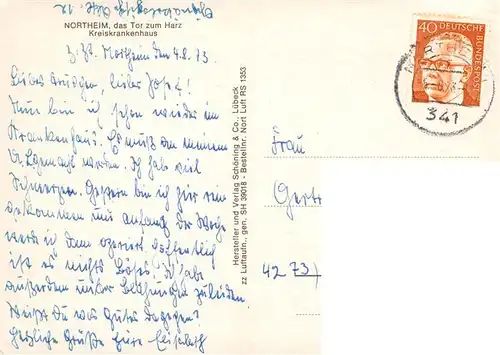 NORTHEIM, das Tor zum Harz
Kreiskrankenhaus
z. Zt. Northeim den 4.8.73
Liebes lieber Josef!
Nun bin ich schon wieder im
Krankenhaus. Es muß an meinem
gemacht werden. Ich hab viel
Schmerzen. Gestern bin ich hier rein
gekommen und anfang der Woche
werde ich dann operiert hoffentlich
ist es nichts Böses. Ich habe
außerdem unter zu leiden.
Weißt Du was Gutes dagegen?
Herzliche Grüße Eure Elisabeth
Hersteller und Verlag Schöning & Co., Lübeck
zz Luftaufn., gen. SH 39018 - Bestellnr. Nort Luft RS 1353
40
DEUTSCHE
BUNDESPOST
341
Frau
Gertr
4273)